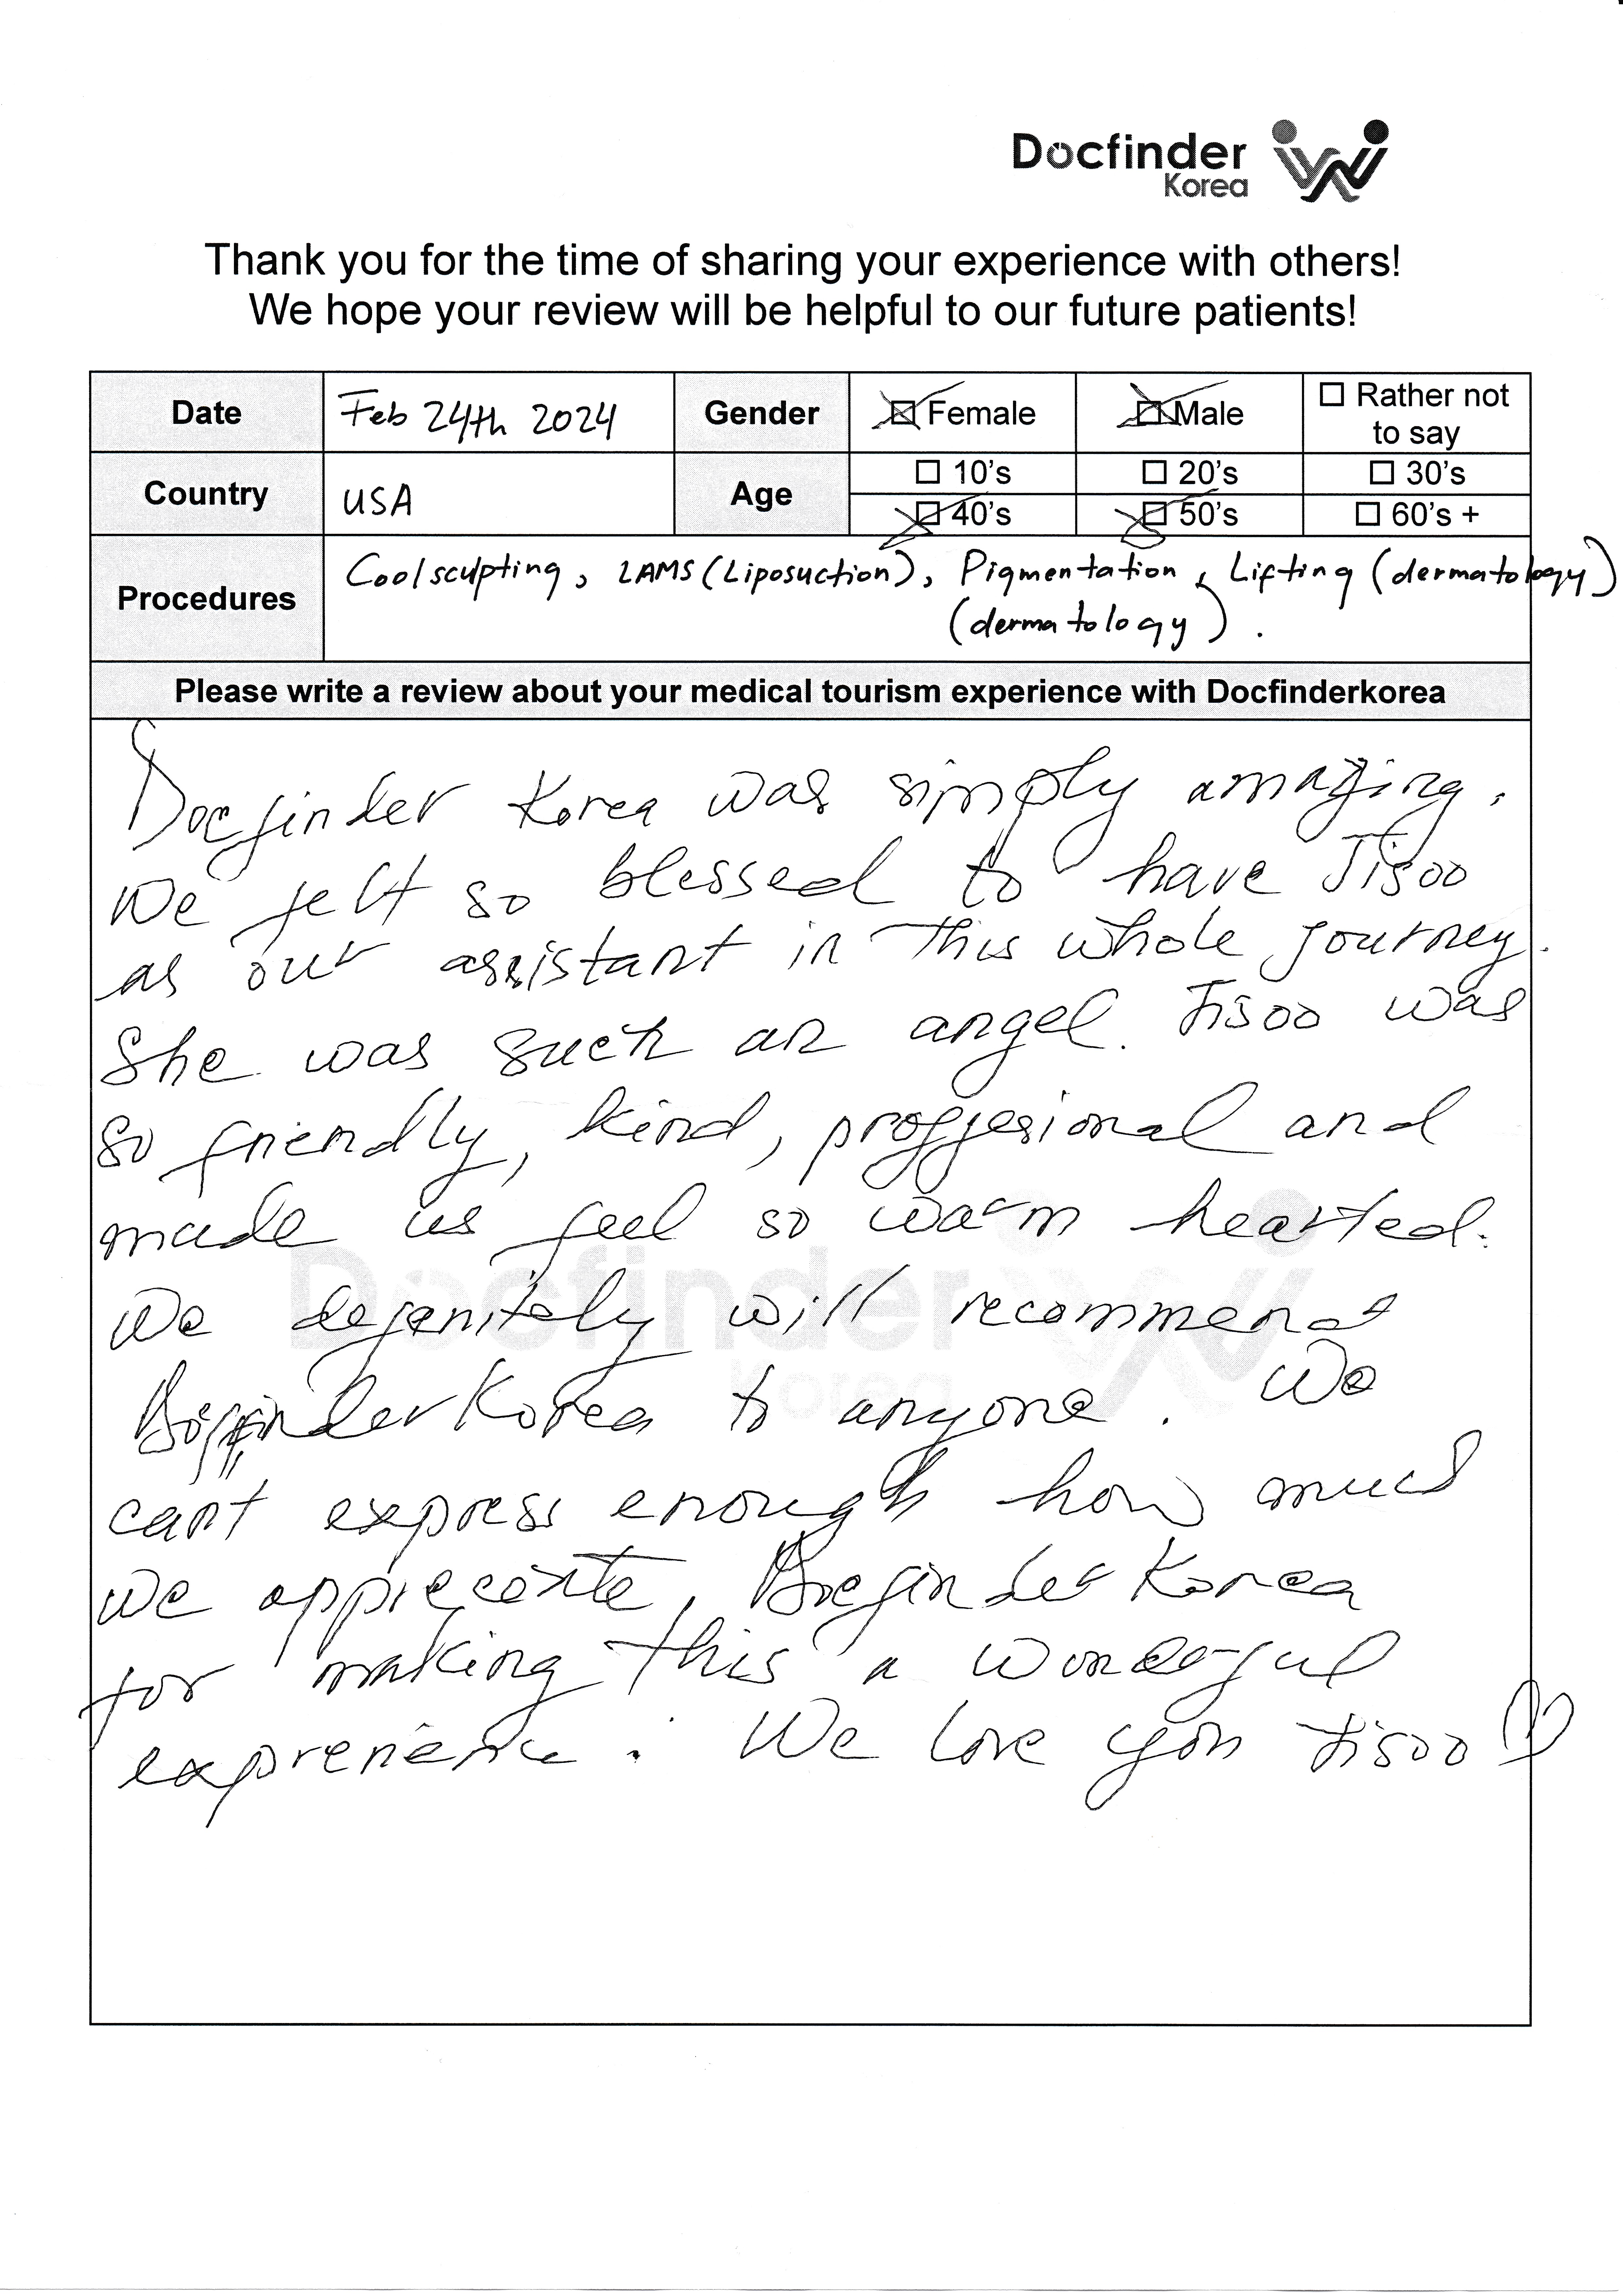 Docfinder
Korea
Thank you for the time of sharing your experience with others!
We hope your review will be helpful to our future patients!
Date Feb 24th 2024 Gender ☒ Female ☒ Male ☐ Rather not to say
Country USA Age ☐ 10's ☐ 20's ☐ 30's
☒ 40's ☒ 50's ☐ 60's +
Procedures Coolsculpting, LAMS (Liposuction), Pigmentation, Lifting (dermatology)
(dermatology).
Please write a review about your medical tourism experience with Docfinderkorea
Docfinder Korea was simply amazing.
We felt so blessed to have Jisoo
as our assistant in this whole journey.
She was such an angel. Jisoo was
so friendly, kind, proffesional and
made us feel so warm hearted.
We defenitely will recommend
Docfinder Korea to anyone. We
cant express enough how much
we appreceate, Docfinder Korea
for making this a wonderful
exprerience. We love you Jisoo ♡
Docfinder
Korea